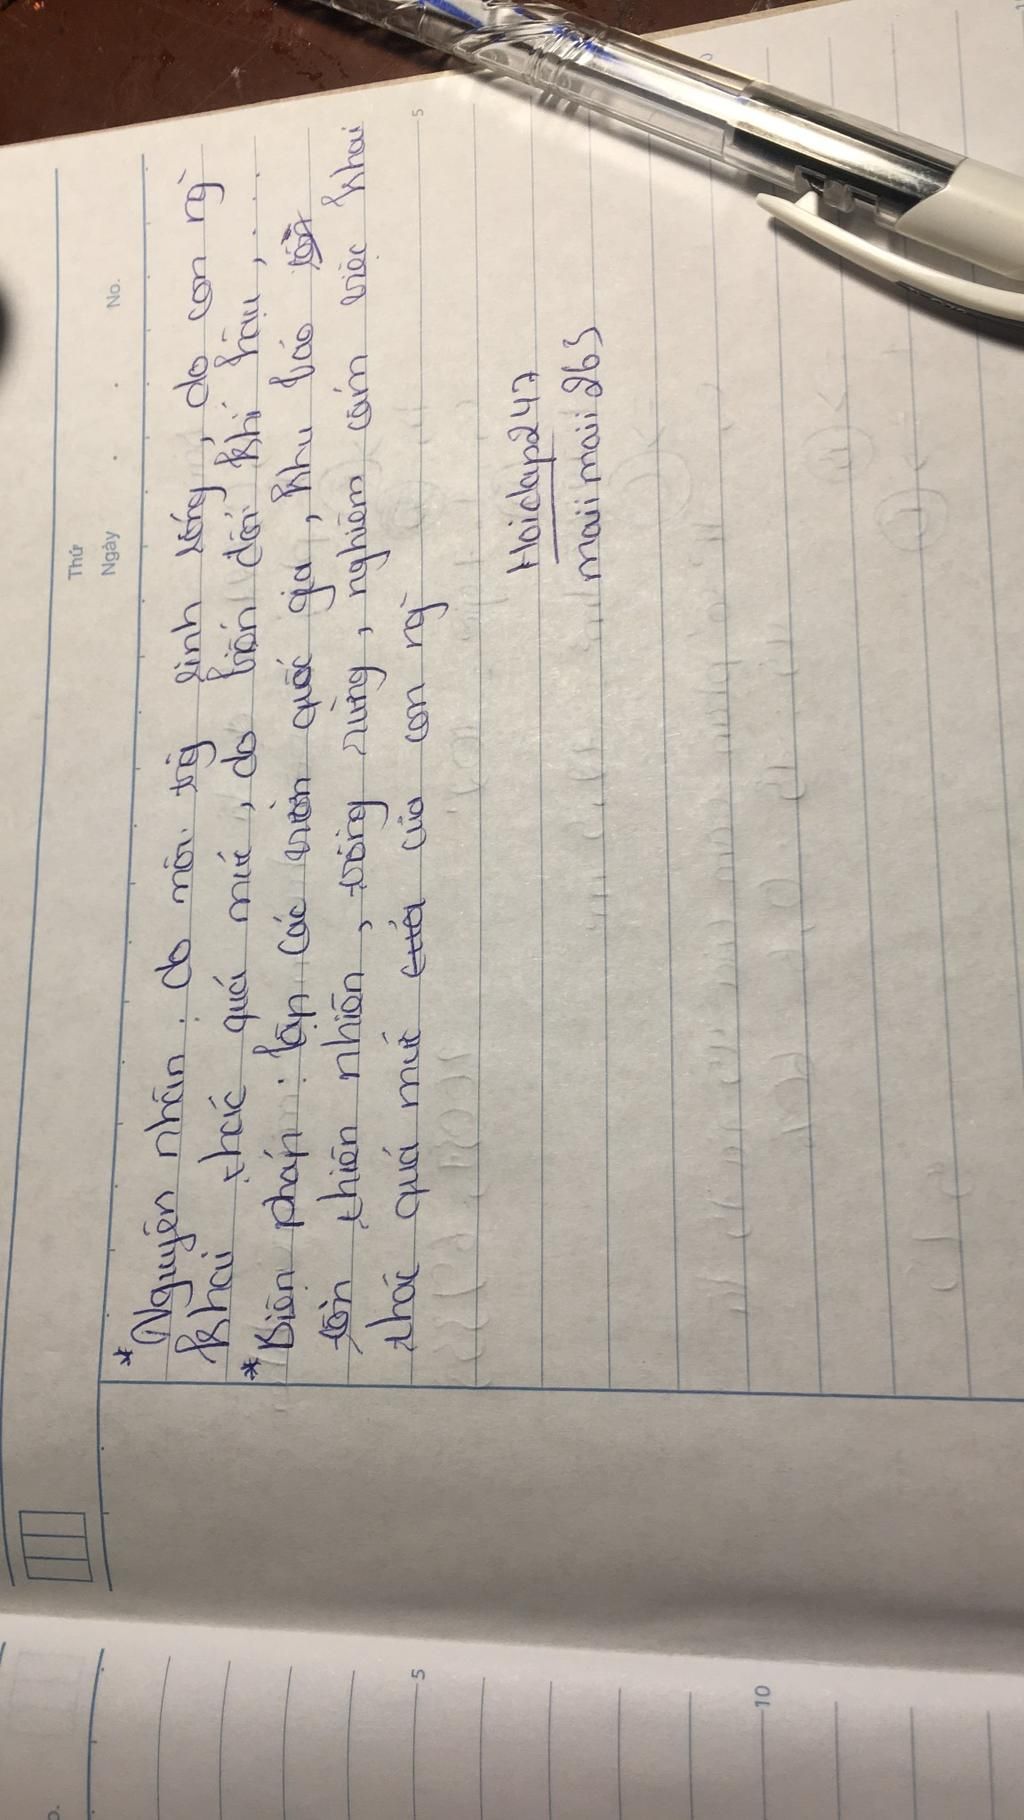 Thứ
Ngày . . No.
* Nguyên nhân : do môi trg sinh sống, do con ng`
khai thác quá mức, do biến đổi khí hậu, ....
* Biện pháp : lập các vườn quốc gia, khu bảo tồn
tồn thiên nhiên, trồng rừng, nghiêm cấm việc khai
thác quá mức của của con ng`
5
Hoidap247
maiimaii263
5
10